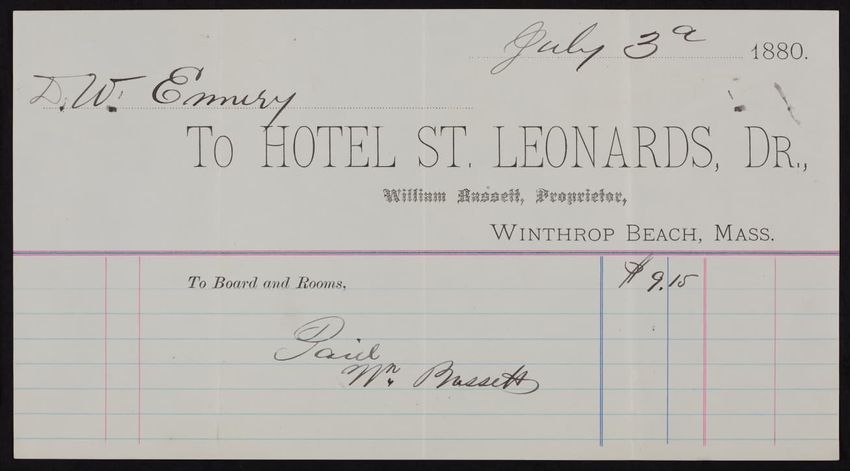 July 3d 1880.
D. W. Emery
To HOTEL ST. LEONARDS, DR.,
William Bassett, Proprietor,
WINTHROP BEACH, MASS.
To Board and Rooms, $9.15
Paid
Wm. Bassett